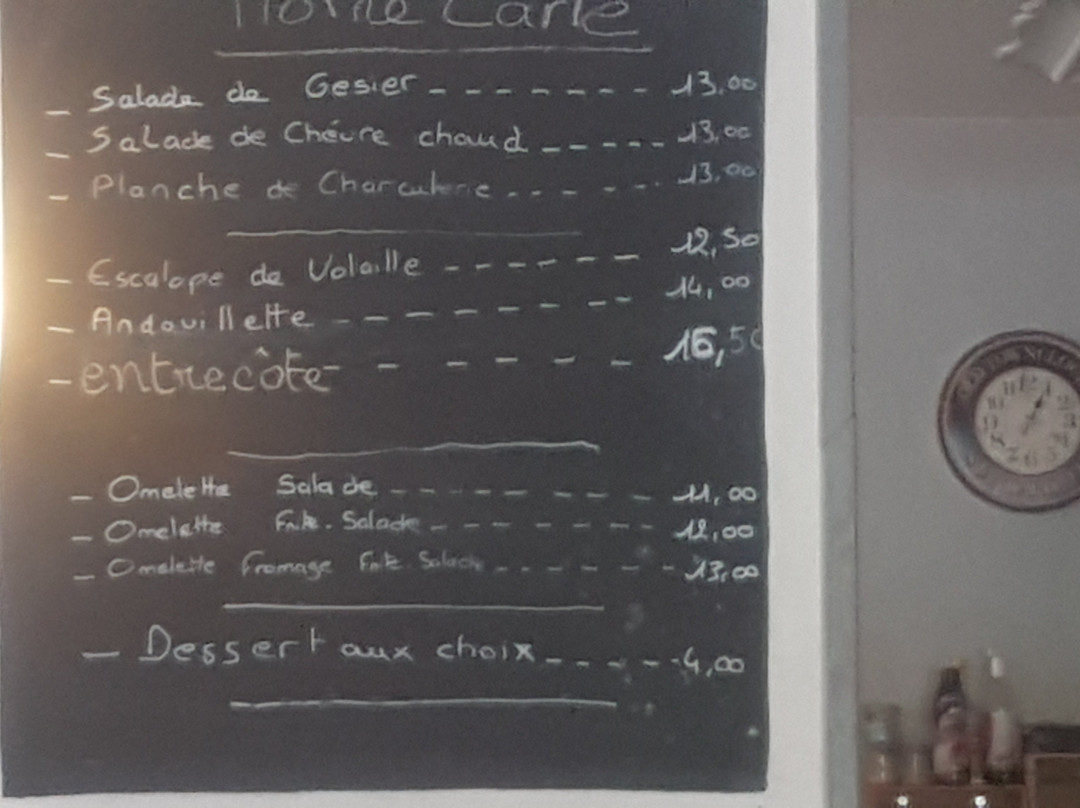 Notre Carte
- Salade de Gesier - - - - - - - 13,00
- Salade de Chévre chaud - - - - - 13,00
- Planche de Charcuterie - - - - - - 13,00
- Escalope de Volaille - - - - - - 12,50
- Andouillette - - - - - - - - 14,00
- entrecôte - - - - - - 16,50
- Omelette Salade - - - - - - - - 11,00
- Omelette Frite. Salade - - - - - - - 12,00
- Omelette Fromage Frite. Salade - - - - - - - 13,00
- Dessert aux choix - - - - - 4,00